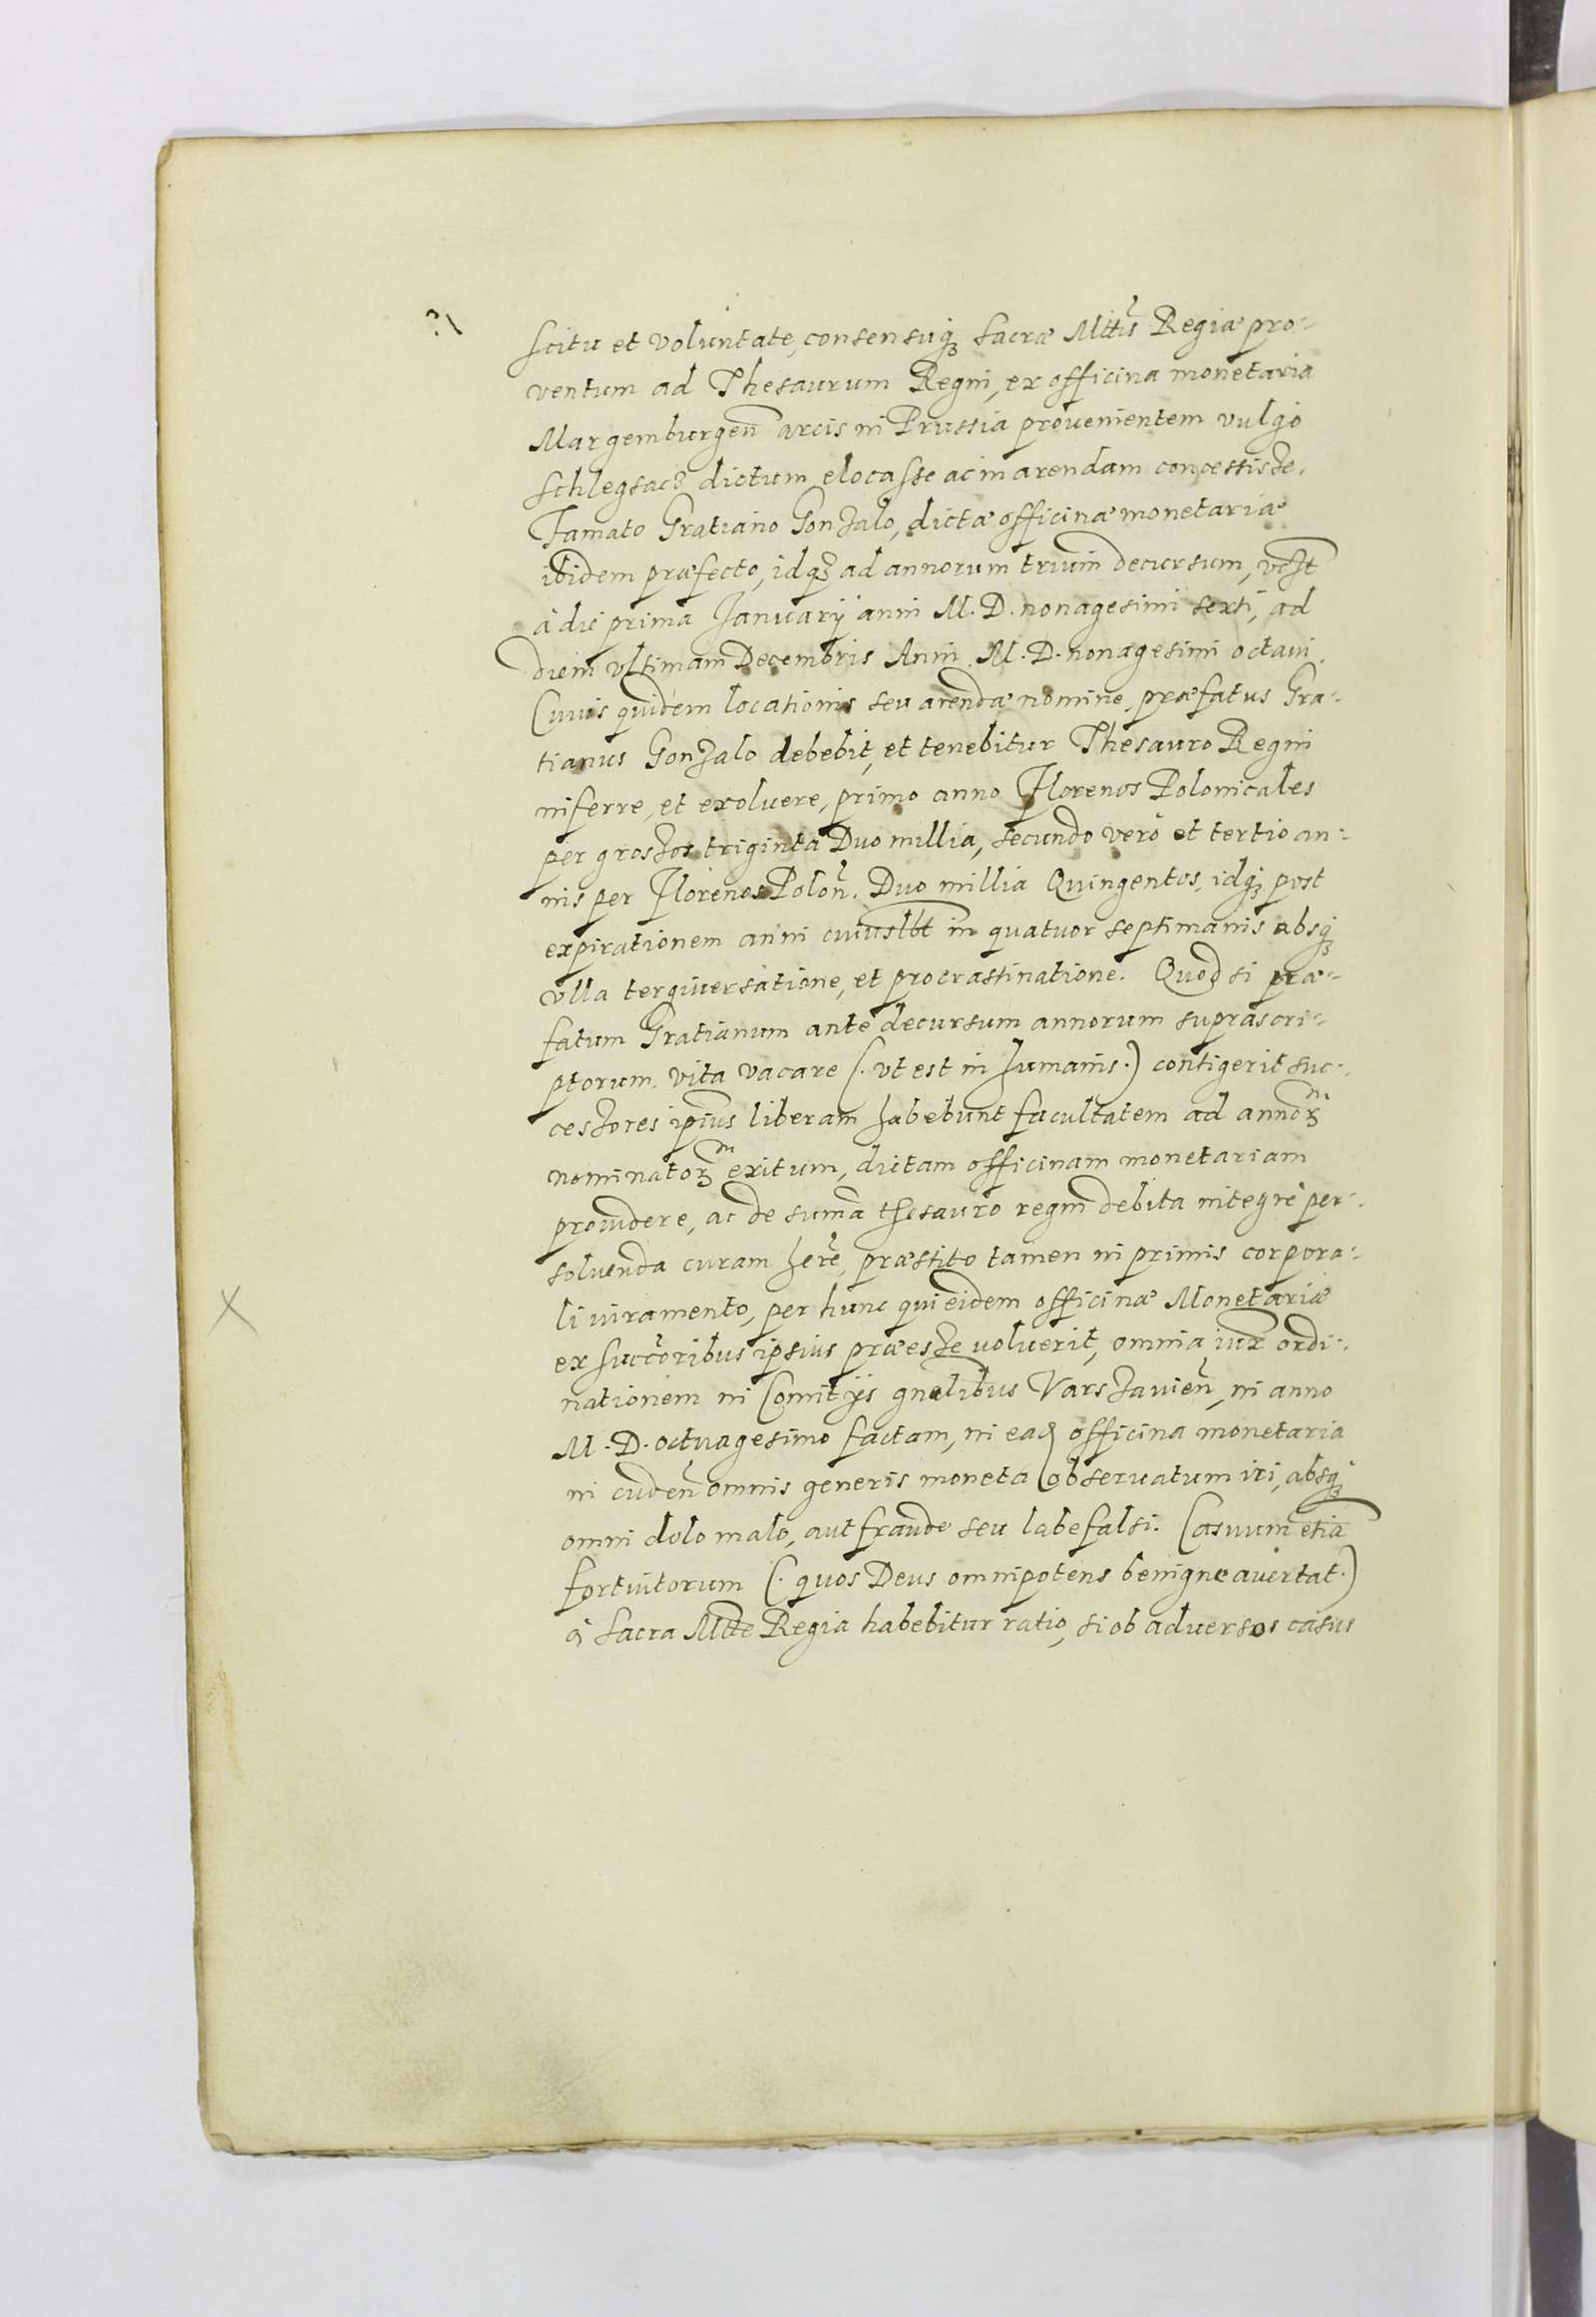 scitu et voluntate, consensuq́ꝫ sacræ Mttis Regiæ pro-
ventum ad Thesaurum Regni, ex officina monetaria
Margemburgeñ arcis in Prussia prouenientem vulgo
Schlegsacz dictum elocasse ac in arendam concessisse.
Famato Gratiano Gonzalo, dictæ officinæ monetariæ
ibidem præfecto, idqꝫ ad annorum trium decursum,
à die prima Januarij anni M. D. nonagesimi sexti, ad
diem vltimam Decembris Anni M. D. nonagesimi octaui.
Cuuis quidem locationis seu arendæ nomine, præfatus Gra-
tianus Gonzalo debebit, et tenebitur Thesauro Regni
inferre, et exoluere, primo anno Florenos Polonicales
per grossos triginta Duo millia, secundo verò et tertio an-
nis per Florenos Poloñ. Duo millia Quingentos, idq́ꝫ post
expirationem anni cuiuslbt in quatuor septimanis absq́ꝫ
vlla tergiuersatione, et procrastinatione. Quod si præ-
fatum Gratianum ante decursum annorum suprascri-
ptorum, vita vacare (. vt est in humanis .) contigerit suc-
cessores ipsius liberam habebunt facultatem ad annoꝝ
nominatoꝝ exitum, dictam officinam monetariam
prouidere, ac de suma thesauro regni debita integrè per-
soluenda curam here, præstito tamen in primis corpora-
li iuramento, per hunc qui eidem officinæ Monetariæ
ex succoribus ipsius præesse voluerit, omnia iux ordi-
nationem in Comitijs gnalibus Varssauieñ, in anno
M. D. octuagesimo factam, in ead officina monetaria
in cudeñ omnis generis moneta obseruatum iri, absq́ꝫ
omni dolo malo, aut fraude seu labe falsi. Casuum etiã
fortuitorum (. quos Deus omnipotens benigne auertat .)
à Sacra Mtte Regia habebitur ratio, si ob aduersos casus